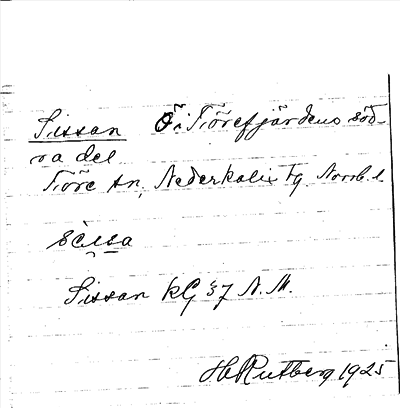 Sissan Ö i Törefjärdens söd-
ra del
Töre sn, Nederkalix tg Norrb. l.
Sissan kG 37 N.M.
H Rutberg 1925